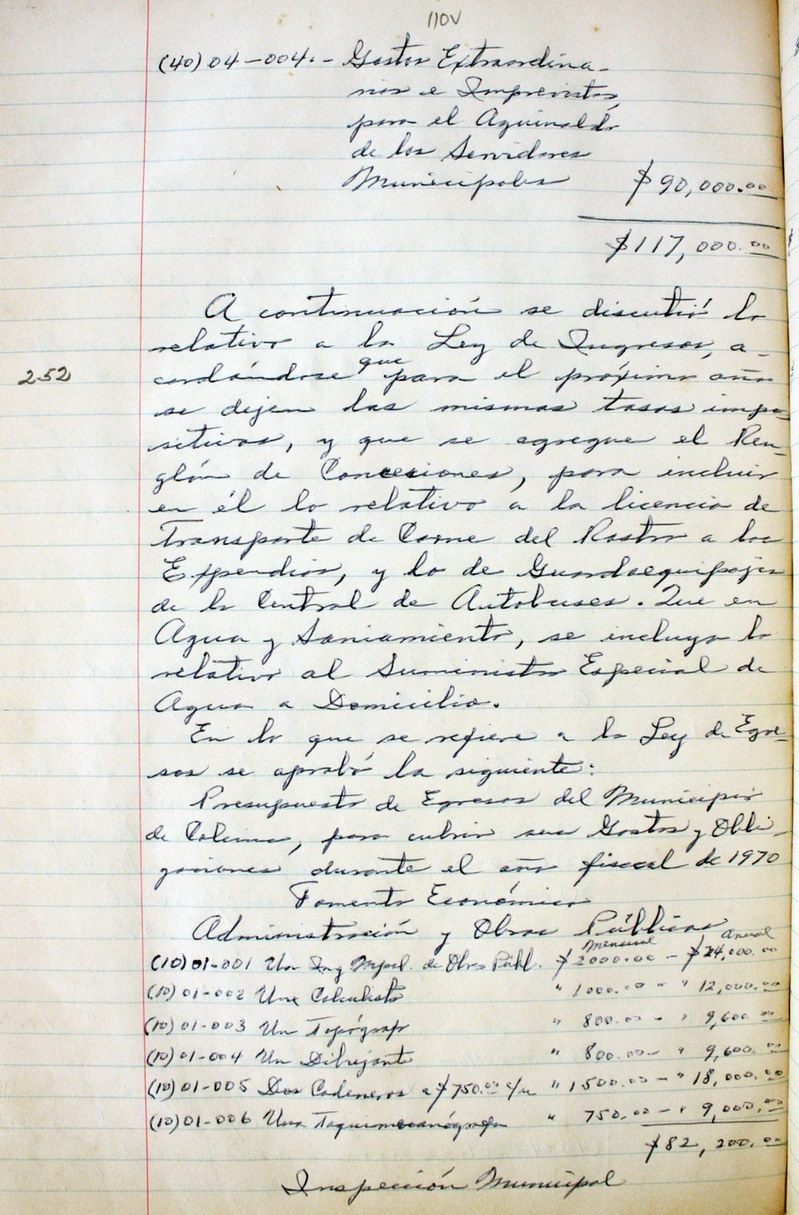 110V
(40)04-004.- Gastos Extraordina-
rios e Imprevistos
para el Aguinaldo
de los Servidores
Municipales $90,000.00
$117,000.00
A continuación se discutió lo
relativo a la Ley de Ingresos, a-
252
cordándose que para el próximo año
se dejen las mismas tasas impo
sitivas, y que se agregue el Ren-
glón de Concesiones, para incluir
en él lo relativo a la licencia de
Transporte de Carne del Rastro a los
Expendios, y lo de Guardaequipajes
de la Central de Autobuses. Que en
Agua y Saniamiento, se incluya lo
relativo al Suministro Especial de
Agua a Domicilio.
En lo que se refiere a la Ley de Egre-
sos se aprobó la siguiente:
Presupuesto de Egresos del Municipio
de Colima, para cubrir sus Gastos y Obli-
gaciones durante el año fiscal de 1970
Fomento Económico
Administración y Obras Públicas
Mensual Anual
(10)01-001 Un Ing Mpal. de Obras Públ. $2000.00 - $24,000.00
(10)01-002 Un Calculista " 1000.00 - " 12,000.00
(10)01-003 Un Topógrafo " 800.00 - " 9,600.00
(10)01-004 Un Dibujante " 800.00 - " 9,600.00
(10)01-005 Dos Cadeneros a $750.00 c/u " 1500.00 - " 18,000.00
(10)01-006 Una Taquimecanógrafa " 750.00 - " 9,000.00
$82,200.00
Inspección Municipal